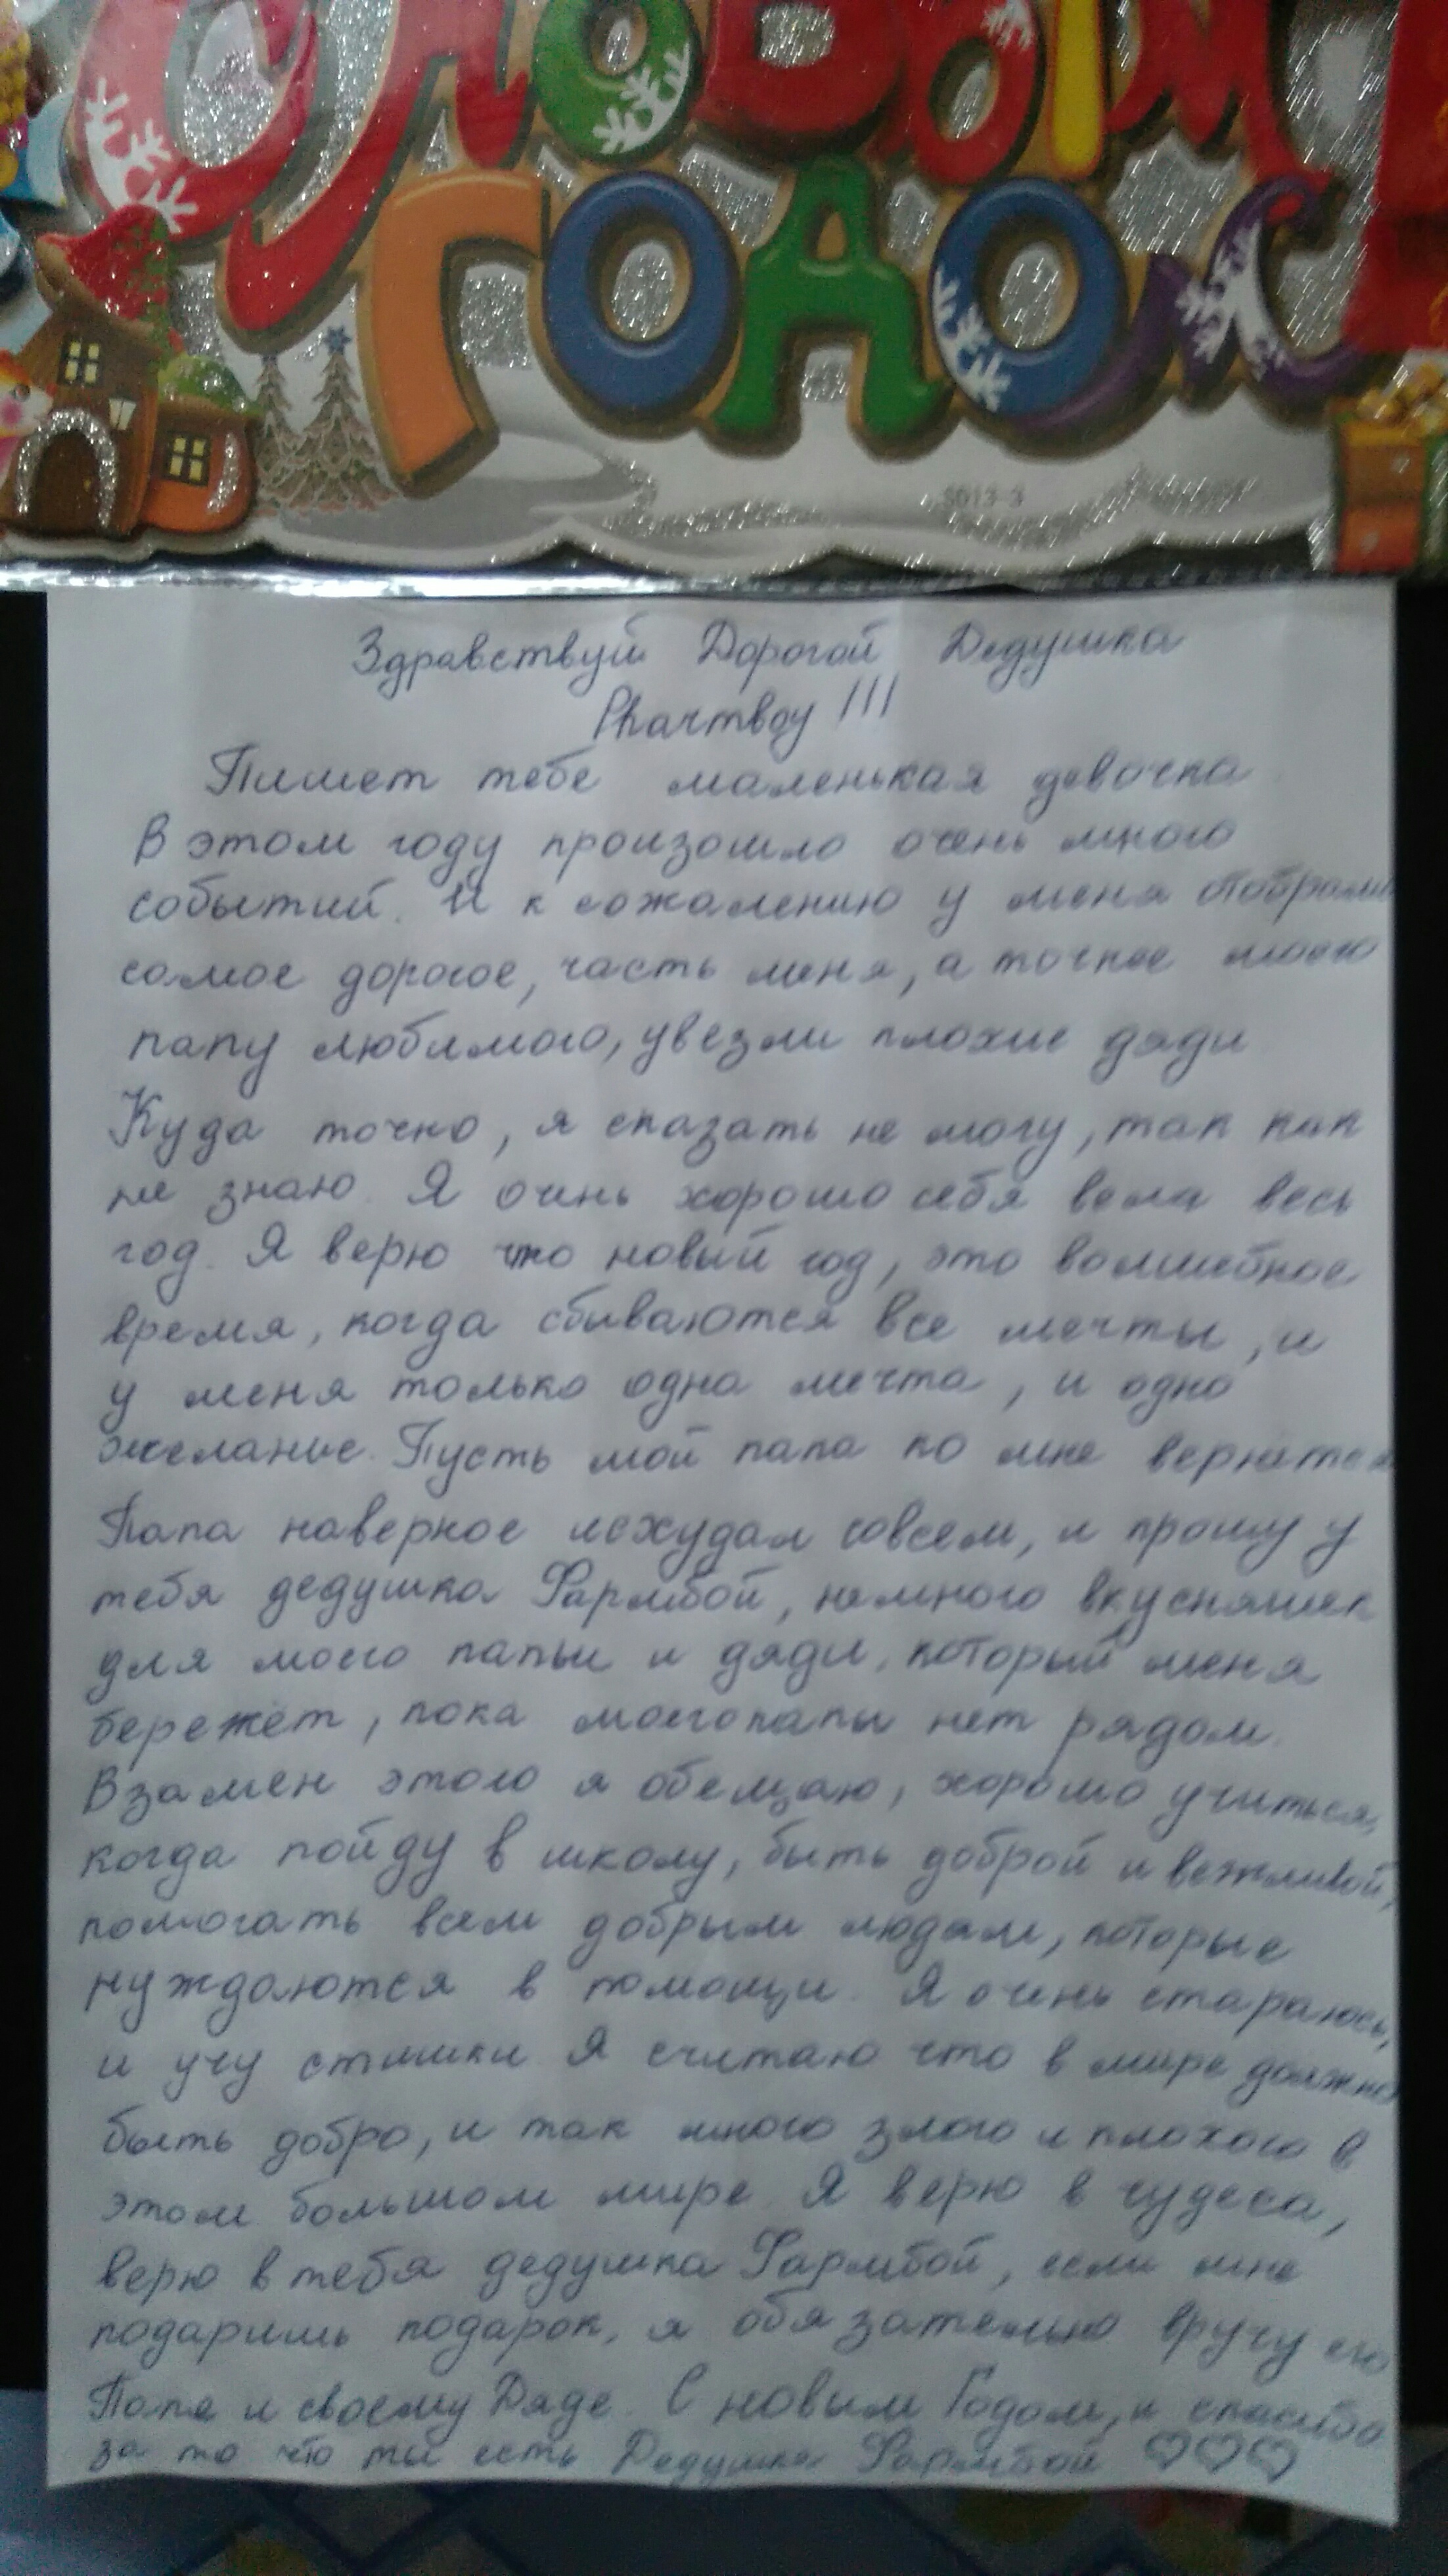 С Новым
Годом
SD13-3
Здравствуй Дорогой Дедушка
Pharmboy !!!
Пишет тебе маленькая девочка
В этом году произошло очень много
событий. И к сожалению у меня отобрали
самое дорогое, часть меня, а точнее моего
папу любимого, увезли плохие дяди
Куда точно, я сказать не могу, так как
не знаю. Я очень хорошо себя вела весь
год. Я верю что новый год, это волшебное
время, когда сбываются все мечты, и
у меня только одна мечта, и одно
желание. Пусть мой папа ко мне вернется
Папа наверное исхудал совсем, и прошу у
тебя дедушка Фармбой, немного вкусняшек
для моего папы и дяди, который меня
бережёт, пока моего папы нет рядом.
Взамен этого я обещаю, хорошо учиться,
когда пойду в школу, быть доброй и вежливой,
помогать всем добрым людям, которые
нуждаются в помощи. Я очень стараюсь,
и учу стишки. Я считаю что в мире должно
быть добро, и так много злого и плохого в
этом большом мире. Я верю в чудеса,
верю в тебя дедушка Фармбой, если мне
подаришь подарок, я обязательно вручу его
Папе и своему Дяде. С новым Годом, и спасибо
за то что ты есть Дедушка Фармбой ♡♡♡